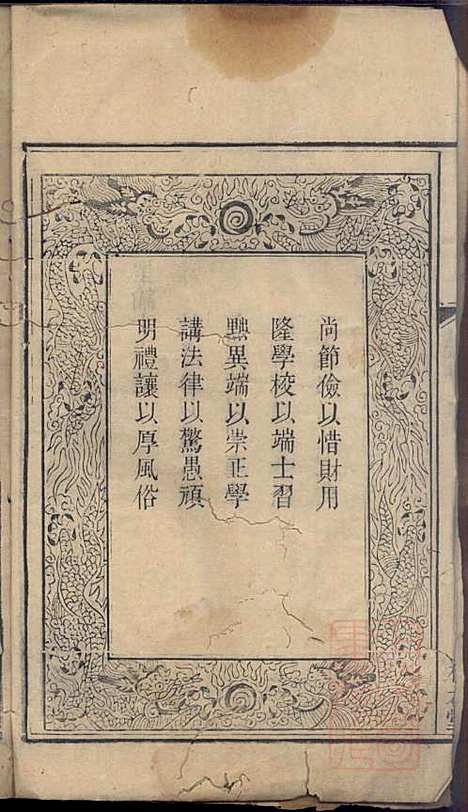 尚節儉以惜財用
隆學校以端士習
黜異端以崇正學
講法律以驚愚頑
明禮讓以厚風俗